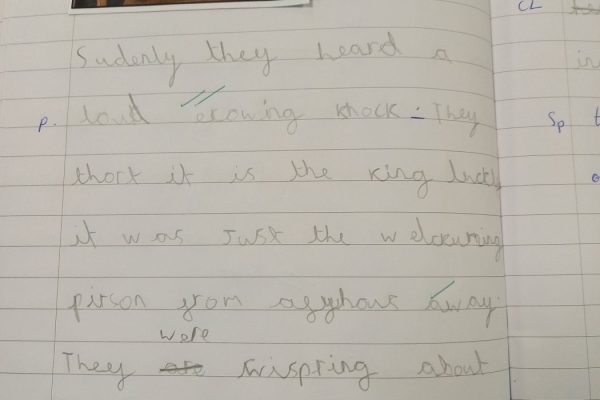 CL
Sudenly they heard a
P. loud erowing knock - They
Sp
thort it is the king luckly
it was Just the welcuming
pirson from
away.
were
They are wispring about